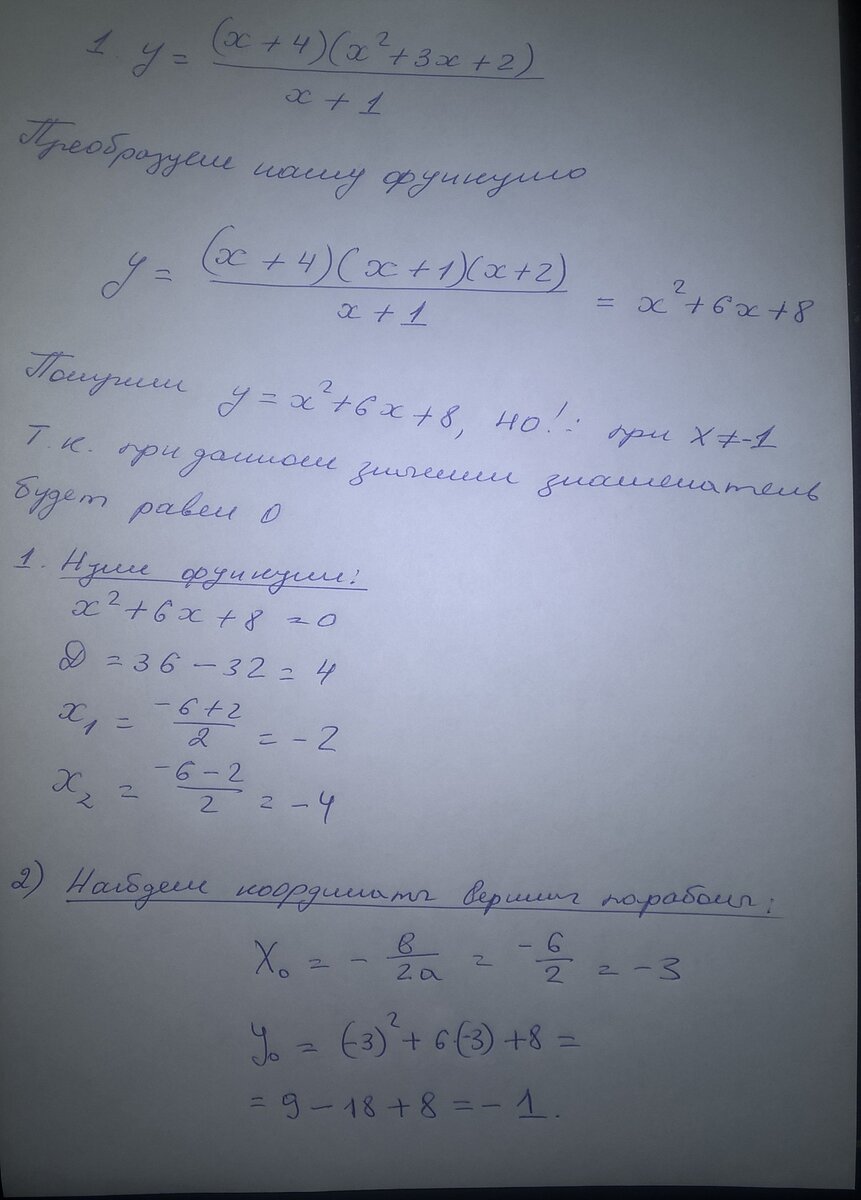 1. y = (x + 4)(x² + 3x + 2) / x + 1
Преобразуем нашу функцию
y = (x + 4)(x + 1)(x + 2) / x + 1 = x² + 6x + 8
Получили y = x² + 6x + 8, НО!: при x ≠ -1
Т.к. при данном значении знаменатель
будет равен 0
1. Нули функции:
x² + 6x + 8 = 0
D = 36 - 32 = 4
x₁ = -6 + 2 / 2 = -2
x₂ = -6 - 2 / 2 = -4
2) Найдем координаты вершины параболы:
X₀ = - в / 2a = -6 / 2 = -3
y₀ = (-3)² + 6(-3) + 8 =
= 9 - 18 + 8 = -1.